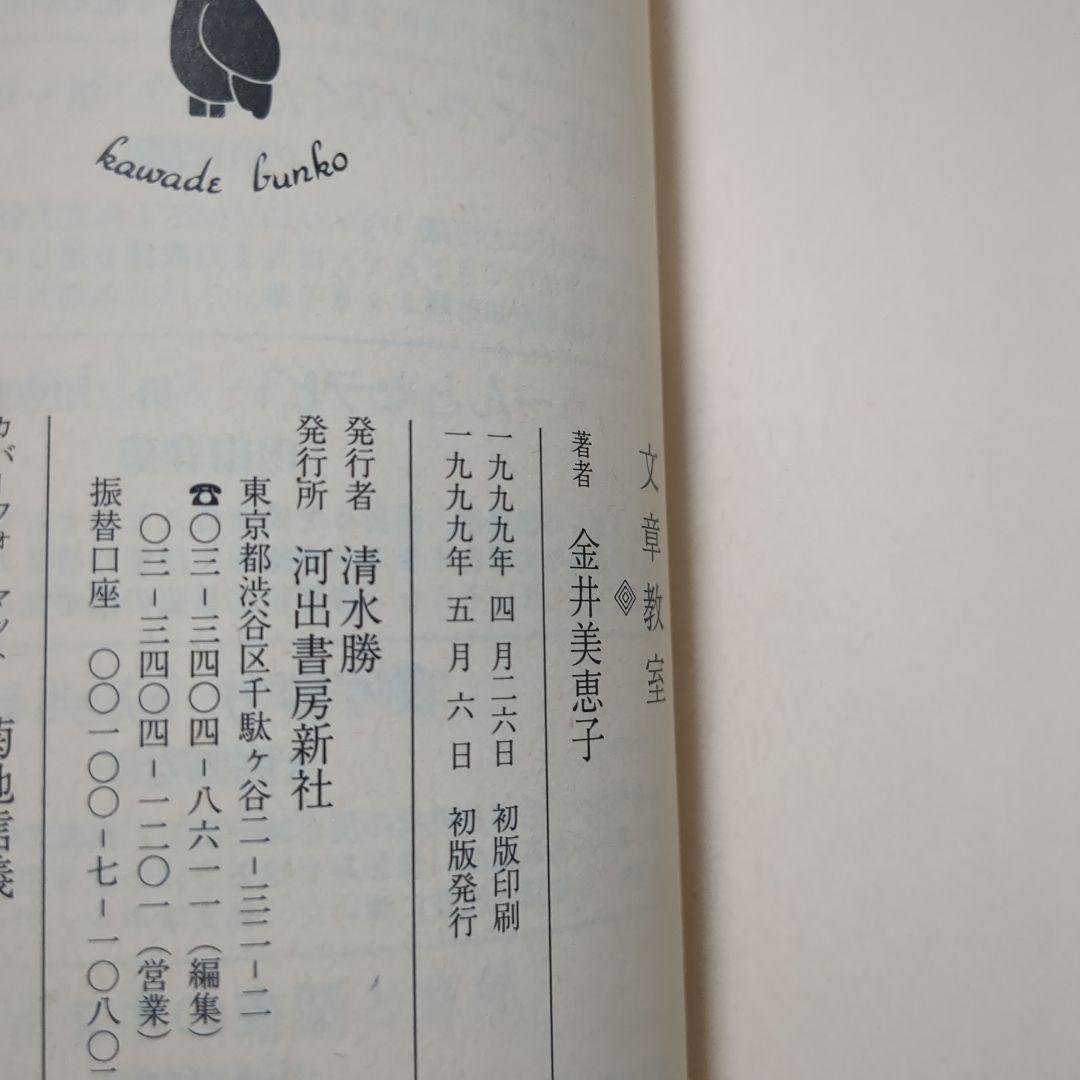 kawade bunko
文章教室
著者 金井美恵子
一九九九年 四 月二六日 初版印刷
一九九九年 五 月 六 日 初版発行
発行者 清水勝
発行所 河出書房新社
東京都渋谷区千駄ヶ谷二-三二-二
☎〇三-三四〇四-八六一一(編集)
〇三-三四〇四-一二〇一(営業)
振替口座 〇〇一〇〇-七-一〇八〇
カバーフォーマット 菊地信義